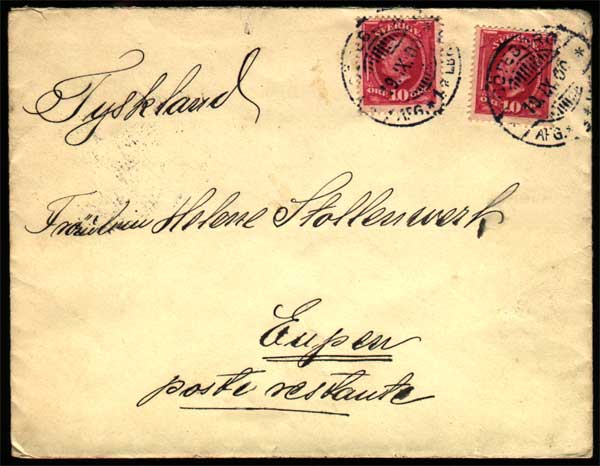 SVERIGE
10 ÖRE
SVERIGE
10
AFG.
AFG.
Tyskland
Fräulein Helene Stollenwerk
Eupen
poste restante